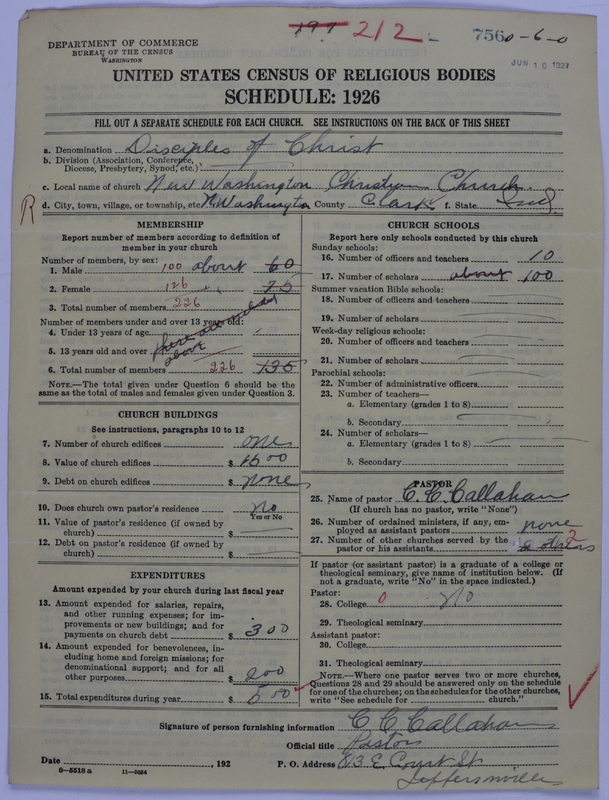 197 212
7560-6-0
DEPARTMENT OF COMMERCE
BUREAU OF THE CENSUS
WASHINGTON
JUN 10 1927
UNITED STATES CENSUS OF RELIGIOUS BODIES
SCHEDULE: 1926
FILL OUT A SEPARATE SCHEDULE FOR EACH CHURCH. SEE INSTRUCTIONS ON THE BACK OF THIS SHEET
a. Denomination Disciples of Christ
b. Division (Association, Conference, Diocese, Presbytery, Synod, etc.)
c. Local name of church New Washington Christian Church
R
d. City, town, village, or township, etc. N. Washington County Clark f. State Ind
MEMBERSHIP
Report number of members according to definition of
member in your church
Number of members, by sex:
1. Male 100 about 60
2. Female 126 75
3. Total number of members 226
Number of members under and over 13 years old:
4. Under 13 years of age
5. 13 years old and over
above
6. Total number of members 226 135
NOTE.—The total given under Question 6 should be the
same as the total of males and females given under Question 3.
CHURCH BUILDINGS
See instructions, paragraphs 10 to 12
7. Number of church edifices one
8. Value of church edifices $ 1500
9. Debt on church edifices $ none
10. Does church own pastor's residence No
Yes or No
11. Value of pastor's residence (if owned by
church) $
12. Debt on pastor's residence (if owned by
church) $
EXPENDITURES
Amount expended by your church during last fiscal year
13. Amount expended for salaries, repairs,
and other running expenses; for im-
provements or new buildings; and for
payments on church debt $ 300
14. Amount expended for benevolences, in-
cluding home and foreign missions; for
denominational support; and for all
other purposes $ 200
15. Total expenditures during year $ 500
CHURCH SCHOOLS
Report here only schools conducted by this church
Sunday schools:
16. Number of officers and teachers 10
17. Number of scholars about 100
Summer vacation Bible schools:
18. Number of officers and teachers
19. Number of scholars
Week-day religious schools:
20. Number of officers and teachers
21. Number of scholars
Parochial schools:
22. Number of administrative officers
23. Number of teachers—
a. Elementary (grades 1 to 8)
b. Secondary
24. Number of scholars—
a. Elementary (grades 1 to 8)
b. Secondary
PASTOR
25. Name of pastor C. C. Callahan
(If church has no pastor, write "None")
26. Number of ordained ministers, if any, em-
ployed as assistant pastors none
27. Number of other churches served by the
pastor or his assistants 2
If pastor (or assistant pastor) is a graduate of a college or
theological seminary, give name of institution below. (If
not a graduate, write "No" in the space indicated.)
Pastor:
28. College 0 No
29. Theological seminary
Assistant pastor:
30. College
31. Theological seminary
NOTE.—Where one pastor serves two or more churches,
Questions 28 and 29 should be answered only on the schedule
for one of the churches; on the schedules for the other churches,
write "See schedule for church."
Signature of person furnishing information C C Callahan
Official title Pastor
Date , 192 P. O. Address 813 E. Court St
Jeffersonville
8—5518 a 11—9064